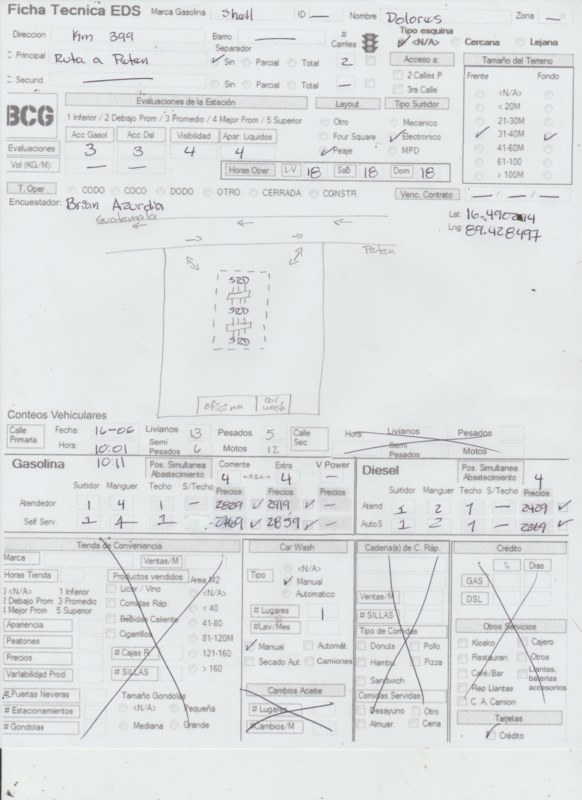 Ficha Tecnica EDS Marca Gasolina Shell ID — Nombre Dolores Zona —
Direccion Km 399 Barrio — # Carriles Tipo esquina <N/A> Cercana Lejana
Principal Ruta a Peten Separador Sin Parcial Total 2 Acceso a: Tamaño del Terreno
Secund — Sin Parcial Total — 2 Calles P 3ra Calle Frente Fondo
<N/A>
< 20M
21-30M
31-40M
41-60M
61-100
> 100M
BCG Evaluaciones de la Estación Layout Tipo Surtidor
1 Inferior / 2 Debajo Prom / 3 Promedio / 4 Mejor Prom / 5 Superior Otro Mecanico
Acc Gasol Acc Dsl Visibilidad Apar Liquidos Four Square Electronico
Evaluaciones 3 3 4 4 Peaje MPD
Vol (KG/M): — — Horas Oper L-V 18 Sab 18 Dom 18
T. Oper CODO COCO DODO OTRO CERRADA CONSTR. Venc. Contrato — / — / —
Encuestador: Brian Azurdia
Guatemala
Lng: 89.428497
Peten
SRD
SRD
SRD
oficina car wash
Conteos Vehiculares
Calle Primaria Fecha: 16-06 Livianos 13 Pesados 5 Calle Sec Hora: Livianos Pesados
Hora: 10:01 Semi Pesados 6 Motos 12 Semi Pesados Motos
10:11
Gasolina Pos. Simultanea Abastecimiento Corriente 4 Extra 4 V Power — Diesel Pos. Simultanea Abastecimiento 4
Surtidor Manguer Techo S/Techo Precios Precios Precios Surtidor Manguer Techo S/Techo Precios
Atendedor 1 4 1 — Atend 1 2 1 —
Self Serv. 1 4 1 — 2859 — Auto S 1 2 1 —
Tienda de Conveniencia Car Wash Cadena(s) de C. Ráp. Crédito
Marca Ventas/M <N/A> % Dias
Horas Tienda Productos vendidos Area M2 Tipo Manual GAS
<N/A> 1 Inferior Licor / Vino <N/A> Automatico Ventas/M DSL
2 Debajo Prom 3 Promedio Comidas Ráp < 40 # Lugares 1 # SILLAS
4 Mejor Prom 5 Superior Bebidas Caliente 41-80 # Lav/Mes Tipo de Comidas Otros Servicios
Apariencia Cigarrillos 81-120M Manual Automát. Donuts Pollo Kiosko Cajero
Peatones # Cajas R 121-160 Secado Aut. Camiones Hambu Pizza Restauran Otros
Precios # SILLAS > 160 Sandwich Café/Bar Llantas, baterias accesorios
Variabilidad Prod. Cambios Aceite Comidas Servidas Rep Llantas
# Puertas Neveras Tamaño Gondolas # Lugares Desayuno Otro C. A. Camion
# Estacionamientos <N/A> Pequeña # Cambios/M Almuer. Cena Tarjetas
# Gondolas Mediana Grande Crédito